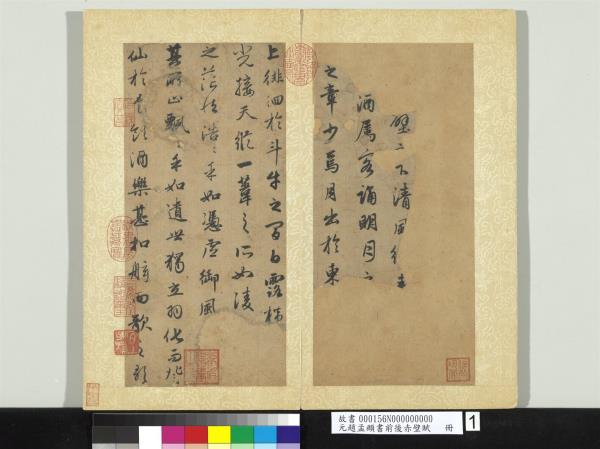 壁之下清風徐來
酒屬客誦明月之
之章少焉月出於東
上徘徊於斗牛之間白露橫
光接天縱一葦之所如凌
之茫然浩浩乎如憑虛御風
其所止飄飄乎如遺世獨立羽化而登
仙於是飲酒樂甚扣舷而歌之歌
故書 000156N000000000
元趙孟頫書前後赤壁賦 冊
1